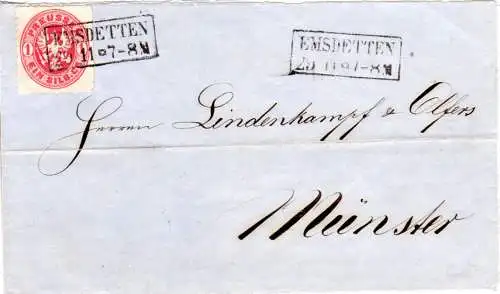 PREUSSEN
1 1
EIN SILB.GR.
EMSDETTEN
11 7-8N
EMSDETTEN
29 11 7-8N
Herren Lindenkampf & Olfers
Münster